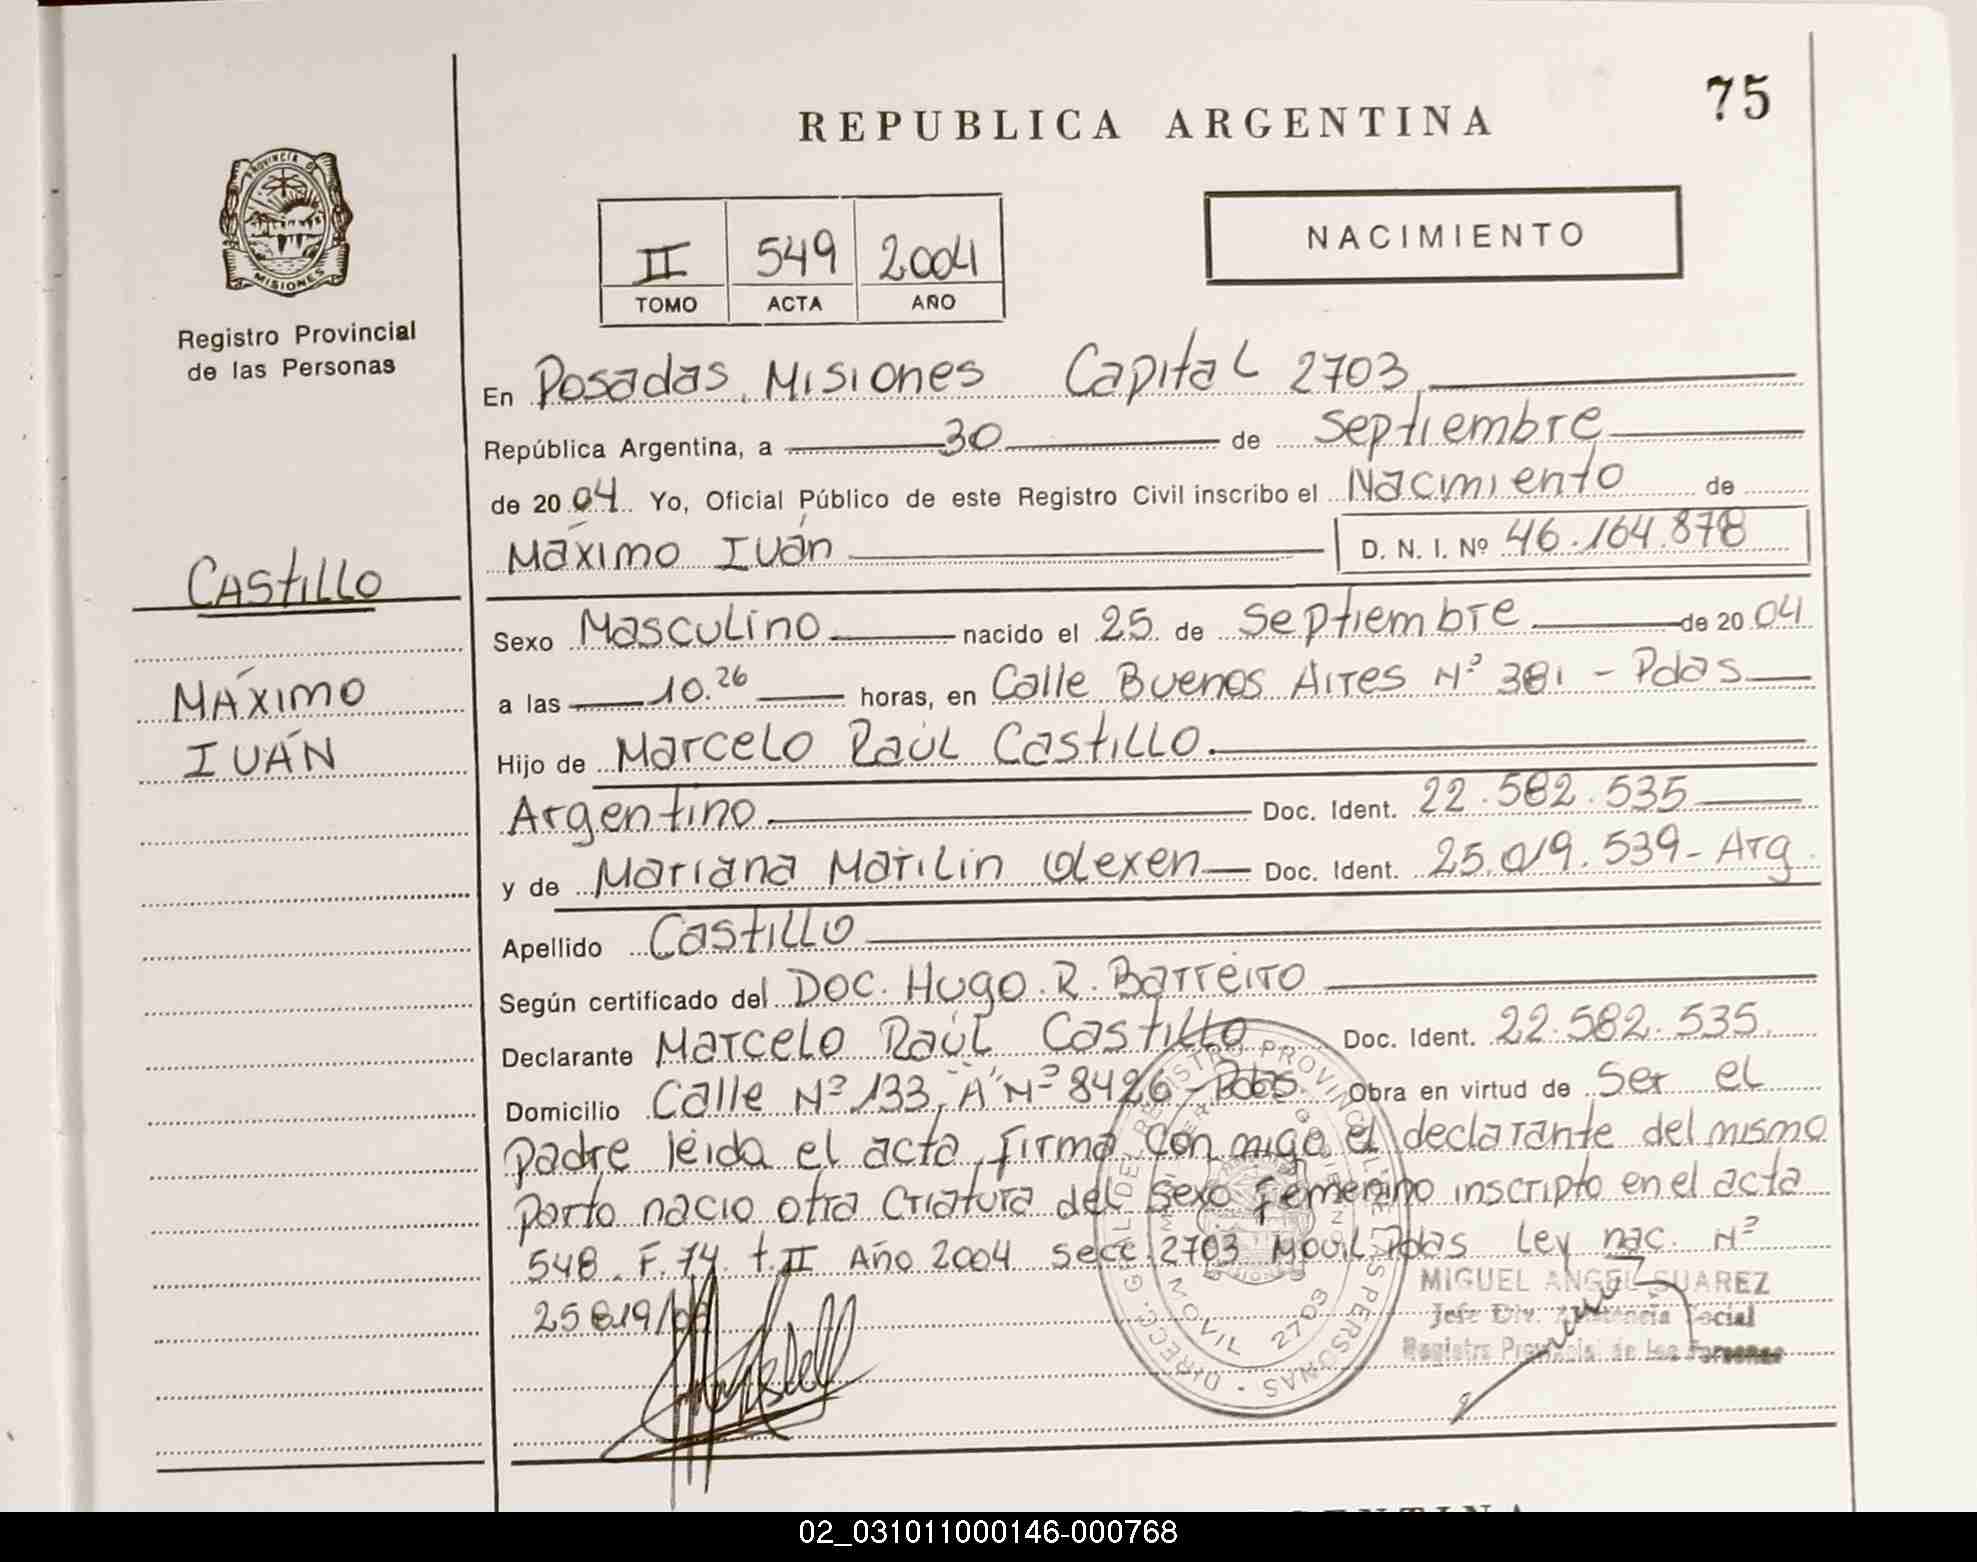 75
REPUBLICA ARGENTINA
PROVINCIA DE
MISIONES
Registro Provincial
de las Personas
II 549 2004
TOMO ACTA AÑO
NACIMIENTO
En Posadas, Misiones Capital 2703
República Argentina, a 30 de septiembre
de 2004 Yo, Oficial Público de este Registro Civil inscribo el Nacimiento de
Máximo Iván D. N. I. Nº 46.164.878
CASTILLO
MÁXIMO
IVÁN
Sexo Masculino nacido el 25 de Septiembre de 2004
a las 10.26 horas, en Calle Buenos Aires Nº 381 - Pdas
Hijo de Marcelo Raúl Castillo
Argentino Doc. Ident. 22.582.535
y de Mariana Marilin Olexen Doc. Ident. 25.019.539 - Arg
Apellido Castillo
Según certificado del Doc. Hugo. R. Barreiro
Declarante Marcelo Raúl Castillo Doc. Ident. 22.582.535
Domicilio Calle Nº 133, "A" Nº 8426 - Pdas. Obra en virtud de Ser el
padre leida el acta, firma con migo el declarante del mismo
parto nacio otra criatura del sexo femenino inscripto en el acta
548. F. 74. t. II Año 2004 secc. 2703 Movil Pdas Ley nac. Nº
25819/
MIGUEL ANGEL SUAREZ
Jefe Div. Asistencia Social
Registro Provincial de las Personas
DIRECC. GRAL DEL REGISTRO PROVINCIAL DE LAS PERSONAS
MOVIL 2703
02_031011000146-000768